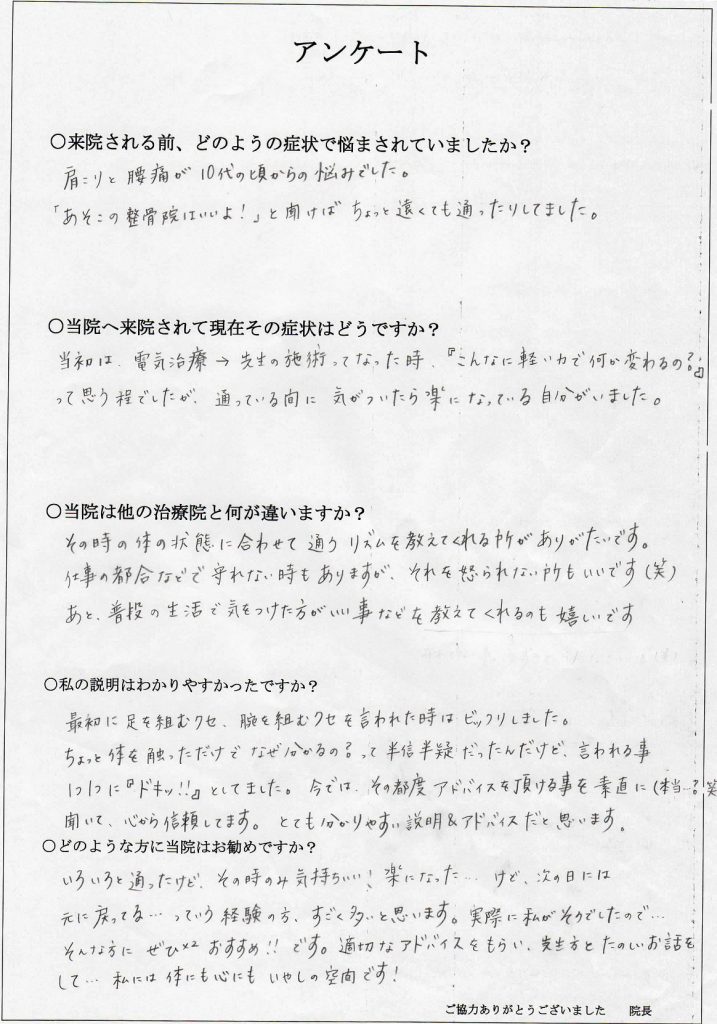 アンケート
〇来院される前、どのようの症状で悩まされていましたか？
肩こりと腰痛が10代の頃からの悩みでした。
「あそこの整骨院はいいよ！」と聞けばちょっと遠くても通ったりしてました。
〇当院へ来院されて現在その症状はどうですか？
当初は、電気治療→先生の施術ってなった時、『こんなに軽い力で何か変わるの？』
って思う程でしたが、通っている間に気がついたら楽になっている自分がいました。
〇当院は他の治療院と何が違いますか？
その時の体の状態に合わせて通うリズムを教えてくれる所がありがたいです。
仕事の都合などで守れない時もありますが、それを怒られない所もいいです(笑)
あと、普段の生活で気をつけた方がいい事などを教えてくれるのも嬉しいです
〇私の説明はわかりやすかったですか？
最初に足を組むクセ、腕を組むクセを言われた時はビックリしました。
ちょっと体を触っただけでなぜ分かるの？って半信半疑だったんだけど、言われる事
1つ1つに『ドキッ!!』としてました。今では、その都度アドバイスを頂ける事を素直に(本当…？笑
聞いて、心から信頼してます。とても分かりやすい説明&アドバイスだと思います。
〇どのような方に当院はお勧めですか？
いろいろと通ったけど、その時のみ気持ちいい！楽になった…けど、次の日には
元に戻ってる…っていう経験の方、すごく多いと思います。実際に私がそうでしたので…
そんな方にぜひ×2おすすめ!!です。適切なアドバイスをもらい、先生方とたのしいお話を
して…私には体にも心にもいやしの空間です！
ご協力ありがとうございました 院長